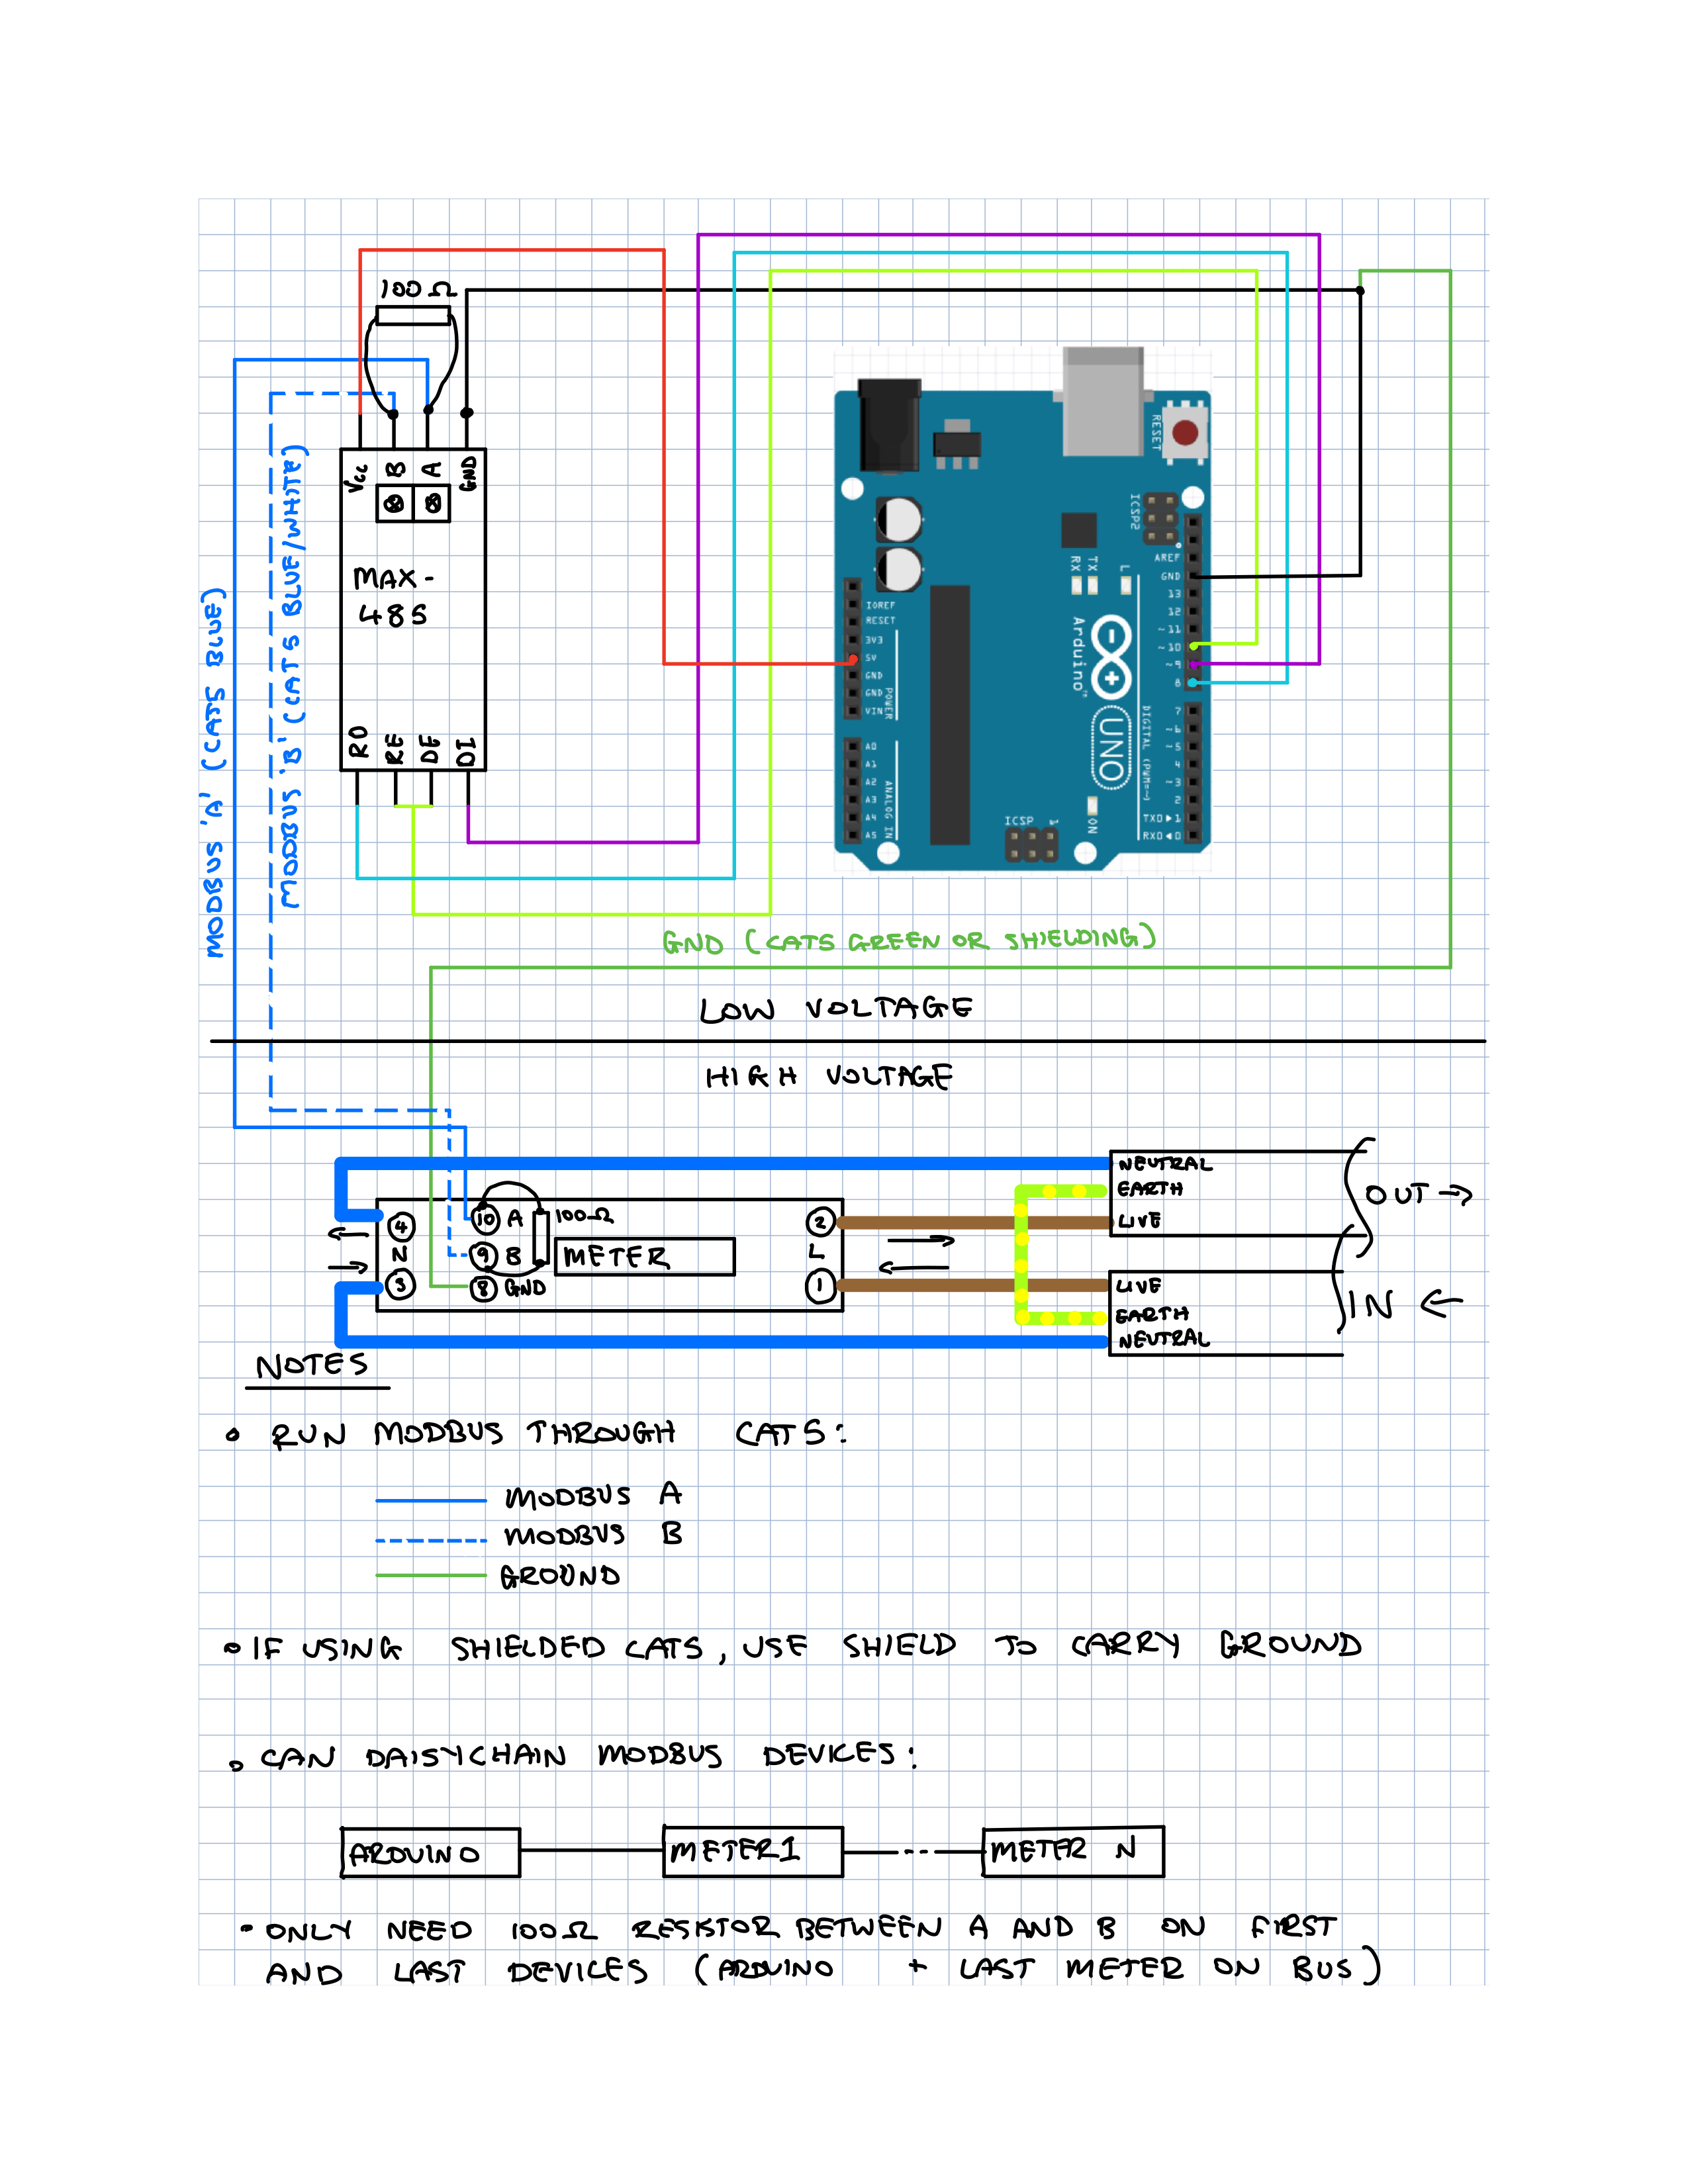 100 Ω
VCC
B
A
GND
MAX-
485
RO
RE
DE
DI
MODBUS 'A' (CAT5 BLUE)
MODBUS 'B' (CAT5 BLUE/WHITE)
RESET
ICSP2
AREF
GND
13
12
~11
~10
~9
8
7
~6
~5
4
~3
2
TXD▶1
RXD◀0
DIGITAL (PWM=~)
L
TX
RX
Arduino™
UNO
ON
ICSP
1
IOREF
RESET
3V3
5V
GND
GND
VIN
POWER
A0
A1
A2
A3
A4
A5
ANALOG IN
GND (CAT5 GREEN OR SHIELDING)
LOW VOLTAGE
HIGH VOLTAGE
NEUTRAL
EARTH
LIVE
OUT →
4
N
3
10 A
100Ω
9 B
METER
8 GND
2
L
1
LIVE
EARTH
NEUTRAL
IN ←
NOTES
• RUN MODBUS THROUGH CAT5:
MODBUS A
MODBUS B
GROUND
• IF USING SHIELDED CAT5, USE SHIELD TO CARRY GROUND
• CAN DAISYCHAIN MODBUS DEVICES:
ARDUINO
METER1
METER N
• ONLY NEED 100Ω RESISTOR BETWEEN A AND B ON FIRST
AND LAST DEVICES (ARDUINO + LAST METER ON BUS)